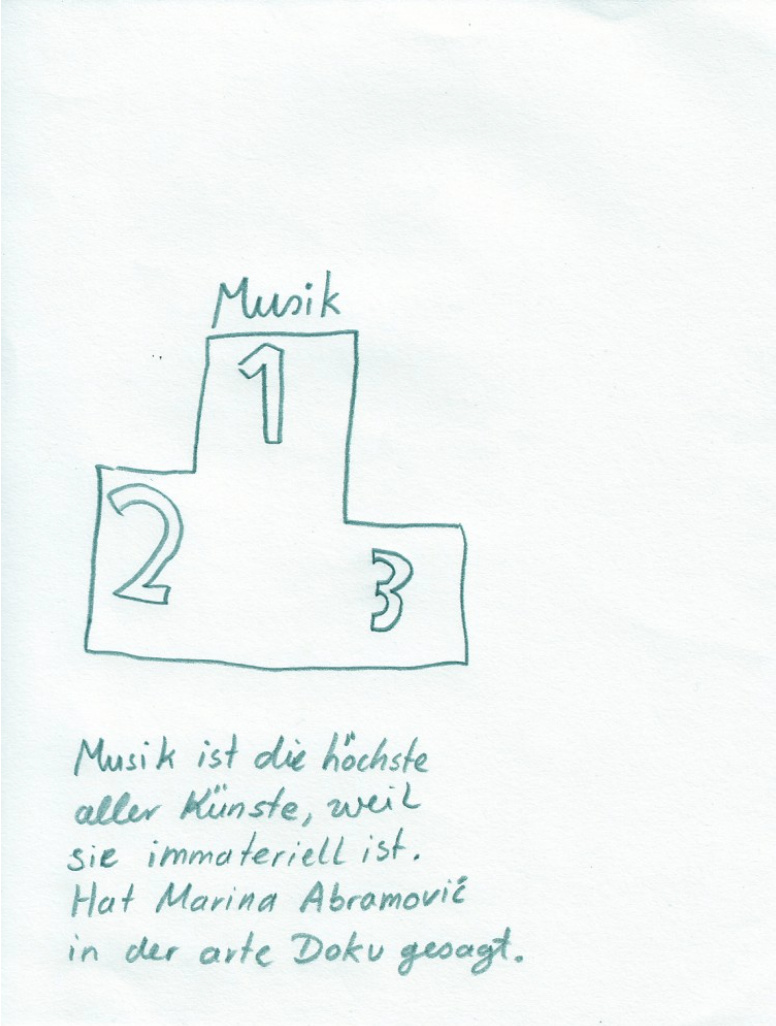 Musik
1
2
3
Musik ist die höchste
aller Künste, weil
sie immateriell ist.
Hat Marina Abramović
in der arte Doku gesagt.